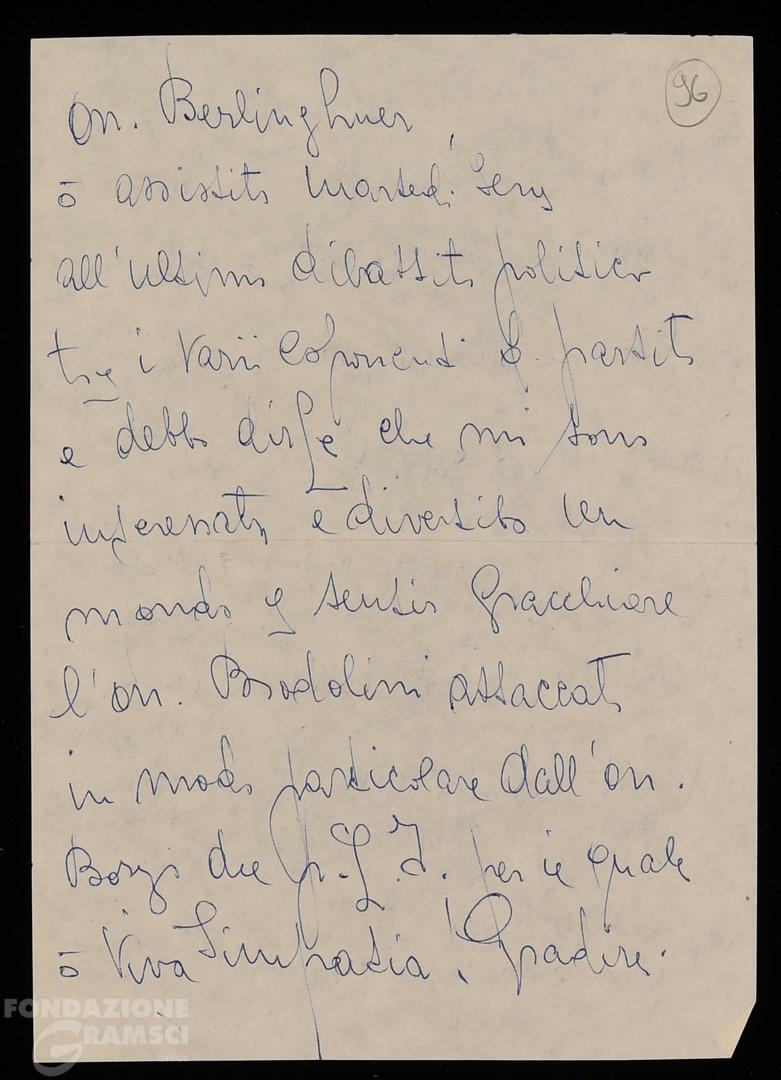 96
On. Berlinghuer,
ō assistito martedì sera
all'ultimo dibattito politico
tra i varii esponenti di partito
e debbo dirle che mi sono
interessato e divertito un
mondo a sentir gracchiare
l'on. Brodolini attaccato
in modo particolare dall'on.
Bozzi del p.L.I. per il quale
ō viva simpatia. Gradirei
FONDAZIONE
GRAMSCI
onlus